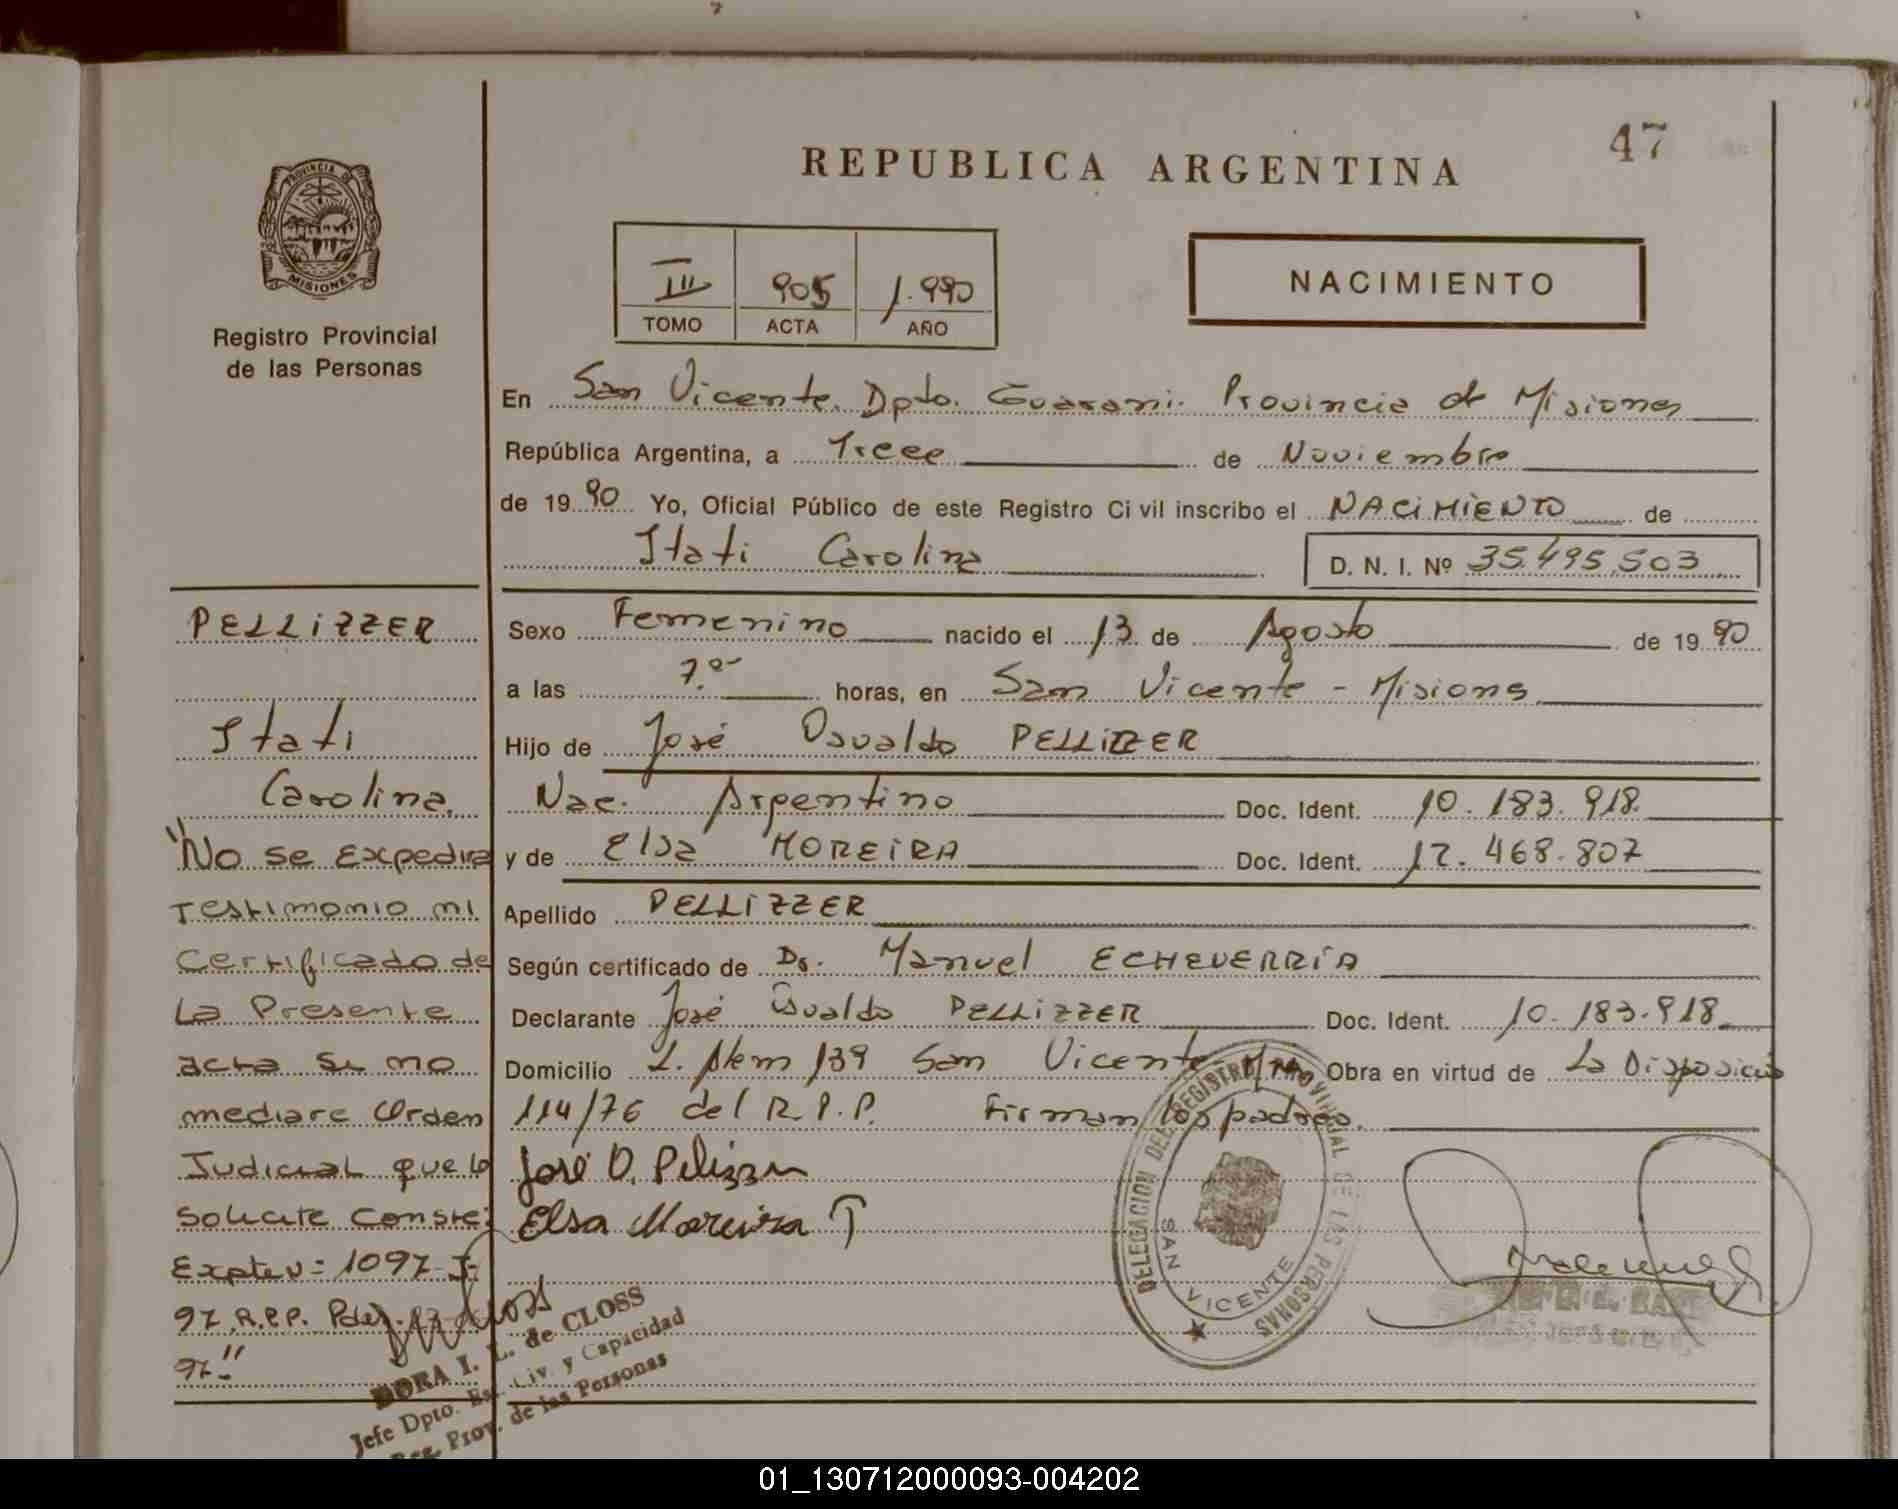 47
REPUBLICA ARGENTINA
PROVINCIA DE
MISIONES
Registro Provincial
de las Personas
III 905 1.990
TOMO ACTA AÑO
NACIMIENTO
En San Vicente. Dpto. Guarani. Provincia de Misiones
República Argentina, a Trece de Noviembre
de 1990 Yo, Oficial Público de este Registro Civil inscribo el NACIMIENTO de
Itati Carolina
D. N. I. Nº 35.495.503
Sexo Femenino nacido el 13 de Agosto de 1990
a las 7.º horas, en San Vicente - Misiones
Hijo de José Osvaldo PELLIZZER
Nac. Argentino Doc. Ident. 10.183.918
y de Elsa MOREIRA Doc. Ident. 12.468.807
Apellido PELLIZZER
Según certificado de Dr. Manuel ECHEVERRÍA
Declarante José Osvaldo PELLIZZER Doc. Ident. 10.183.918
Domicilio L. Alem 139 San Vicente Obra en virtud de La Disposición
114/76 del R.P.P. Firman los padres.
José O. Pelizzer
Elsa Moreira
PELLIZZER
Itati
Carolina.
"No se Expedira
Testimonio ni
Certificado de
La Presente
acta si no
mediare Orden
Judicial que lo
Solicite Conste:
Expte Nº 1097-J-
97.R.P.P. Pdas.
97."
DORA I. L. de CLOSS
Jefe Dpto. Est. Civ. y Capacidad
Reg. Prov. de las Personas
DELEGACION DEL REGISTRO PROVINCIAL DE LAS PERSONAS
SAN VICENTE
01_130712000093-004202